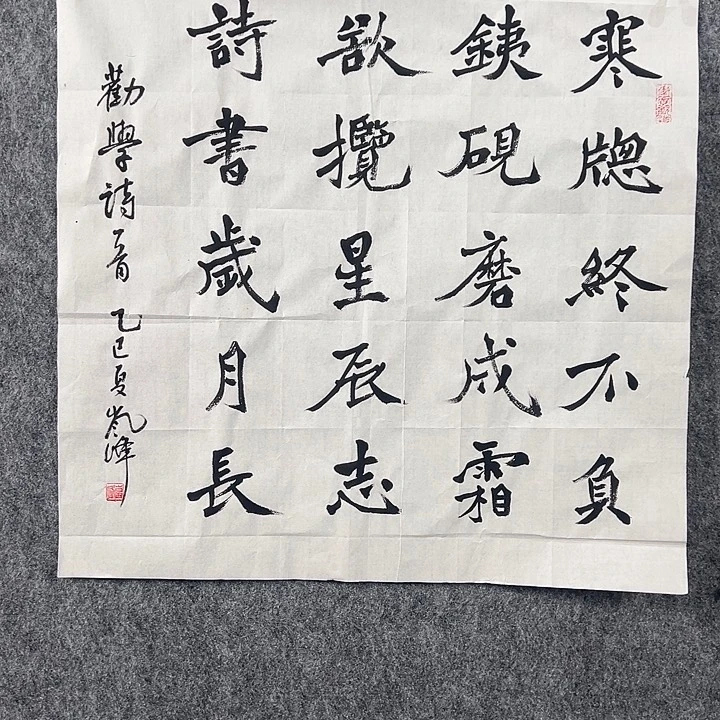 寒牕終不負
銕硯磨成霜
欲攬星辰志
詩書歲月長
勸學詩一首 乙巳夏 嵐峰